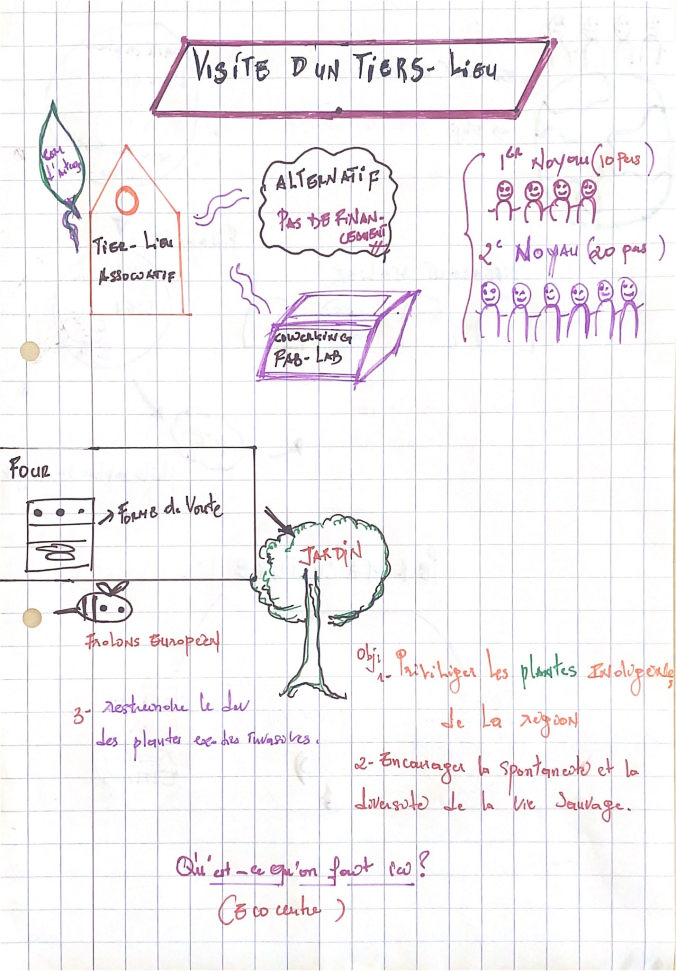 VISITE D'UN TIERS-LIEU
TIER-LIEU
ASSOCIATIF
ALTERNATIF
PAS DE FINAN-
CEMENT
COWERKING
FAB-LAB
1ER NOYAU (10 pers)
2e NOYAU (20 pers)
FOUR
FORME de Voute
JARDIN
FROLONS EUROPEEN
Obj:
1- Priviliger les plantes INDIGENES
de La region
2- Encourager la spontaneite et la
diversite de la vie sauvage.
3- restreindre le
des plantes invasives.
Qu'est-ce qu'on fait ici?
(Eco centre)